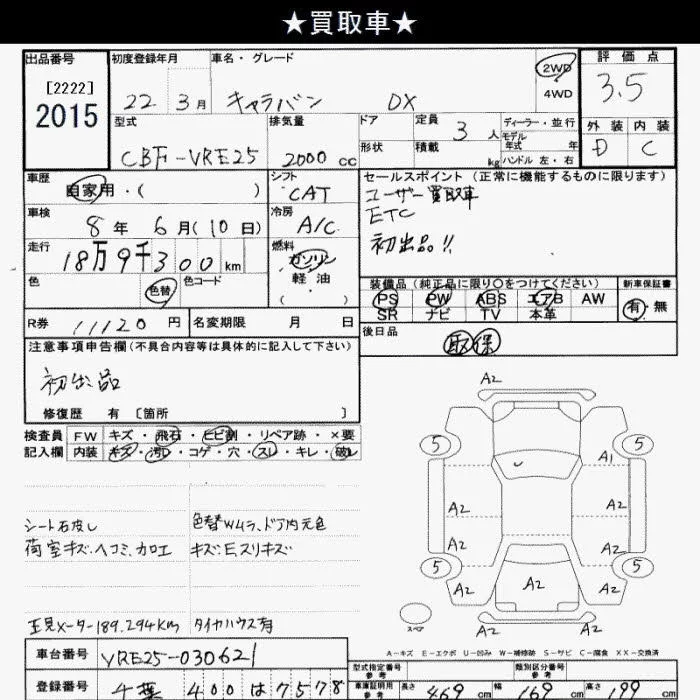 ★買取車★
出品番号 初度登録年月 車名・グレード 2WD 4WD 評価点
[2222]
2015 22年 3月 キャラバン DX 3.5
型式 排気量 ドア 定員 3人 ディーラー・並行 外装 内装
CBF-VRE25 2000cc 形状 積載 kg モデル年式 年 D C
ハンドル 左・右
車歴 自家用・( ) シフト CAT セールスポイント(正常に機能するものに限ります)
ユーザー買取車
ETC
初出品!!
車検 8年 6月(10日) 冷房 A/C
走行 18万9千300km 燃料 ガソリン 軽油 ( )
色 色替 色コード
装備品(純正品に限り○をつけてください) 新車保証書
PS PW ABS エアB AW 有・無
SR ナビ TV 本革
R券 11120円 名変期限 月 日 後日品
取 保
注意事項申告欄(不具合内容等は具体的に記入して下さい)
初出品
修復歴 有 [箇所 ]
検査員 FW キズ・飛石・ヒビ割・リペア跡・×要
記入欄 内装 キズ・汚レ・コゲ・穴・スレ・キレ・破レ
色替Wムラ、ドア内元色
荷室キズ、ヘコミ、カロエ キズ、E、スリキズ
メーター189,294km タイヤハウス有
A2
5 5
A1
A2 A2
A2 A2
5 5
A2 A2 A2
A2
スペア
A-キズ E-エクボ U-凹み W-補修跡 S-サビ C-腐食 XX-交換済
車台番号 VRE25-030621
型式指定番号 参考 類別区分番号 参考
登録番号 千葉 400 は 7578
車庫証明用 参考 長さ 469cm 幅 169cm 高さ 199cm